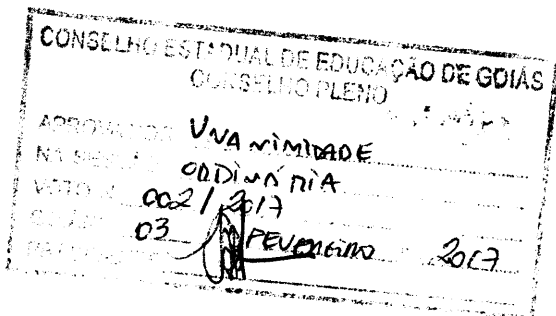 CONSELHO ESTADUAL DE EDUCAÇÃO DE GOIÁS
CONSELHO PLENO
UNANIMIDADE
NA ORDINÁRIA
VOTO N 002 / 2017
03 FEVEREIRO 2017